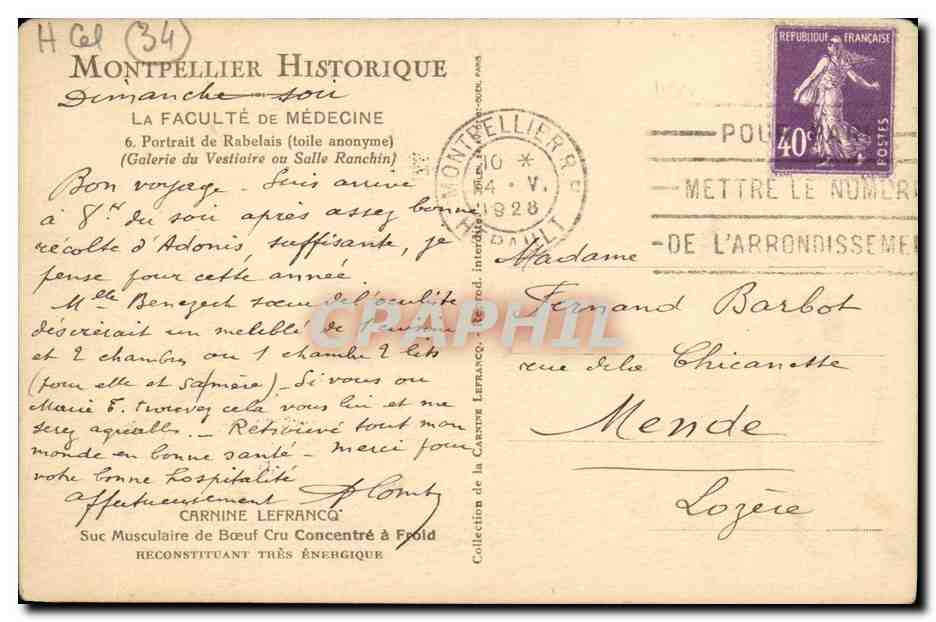 H Cel (34)
MONTPELLIER HISTORIQUE
Dimanche soir
LA FACULTÉ DE MÉDECINE
6. Portrait de Rabelais (toile anonyme)
(Galerie du Vestiaire ou Salle Ranchin)
Bon voyage. Suis arrivé
à 8 hrs du soir après assez bonne
récolte d'Adonis suffisante, je
pense pour cette année
Mlle Benezech sœur de l'oculiste
désirerait un meublé de 1 cuisine
et 2 chambres ou 1 chambre 2 lits
(pour elle et sa mère) _ Si vous ou
Marie F. trouvez cela vous lui et me
serez agréables _ Retrouvé tout mon
monde en bonne santé _ merci pour
votre bonne hospitalité
affectueusement
CARNINE LEFRANCQ
Suc Musculaire de Bœuf Cru Concentré à Froid
RECONSTITUANT TRÈS ÉNERGIQUE
Collection de la CARNINE LEFRANCQ. - Reprod. interdite.
MONTPELLIER R.P
10 *
4 · V.
1928
HERAULT
METTRE LE NUMERO
DE L'ARRONDISSEMENT
REPUBLIQUE FRANÇAISE
40c
POSTES
Madame
Fernand Barbot
rue de la Chicanette
Mende
Lozère
CPAPHIL